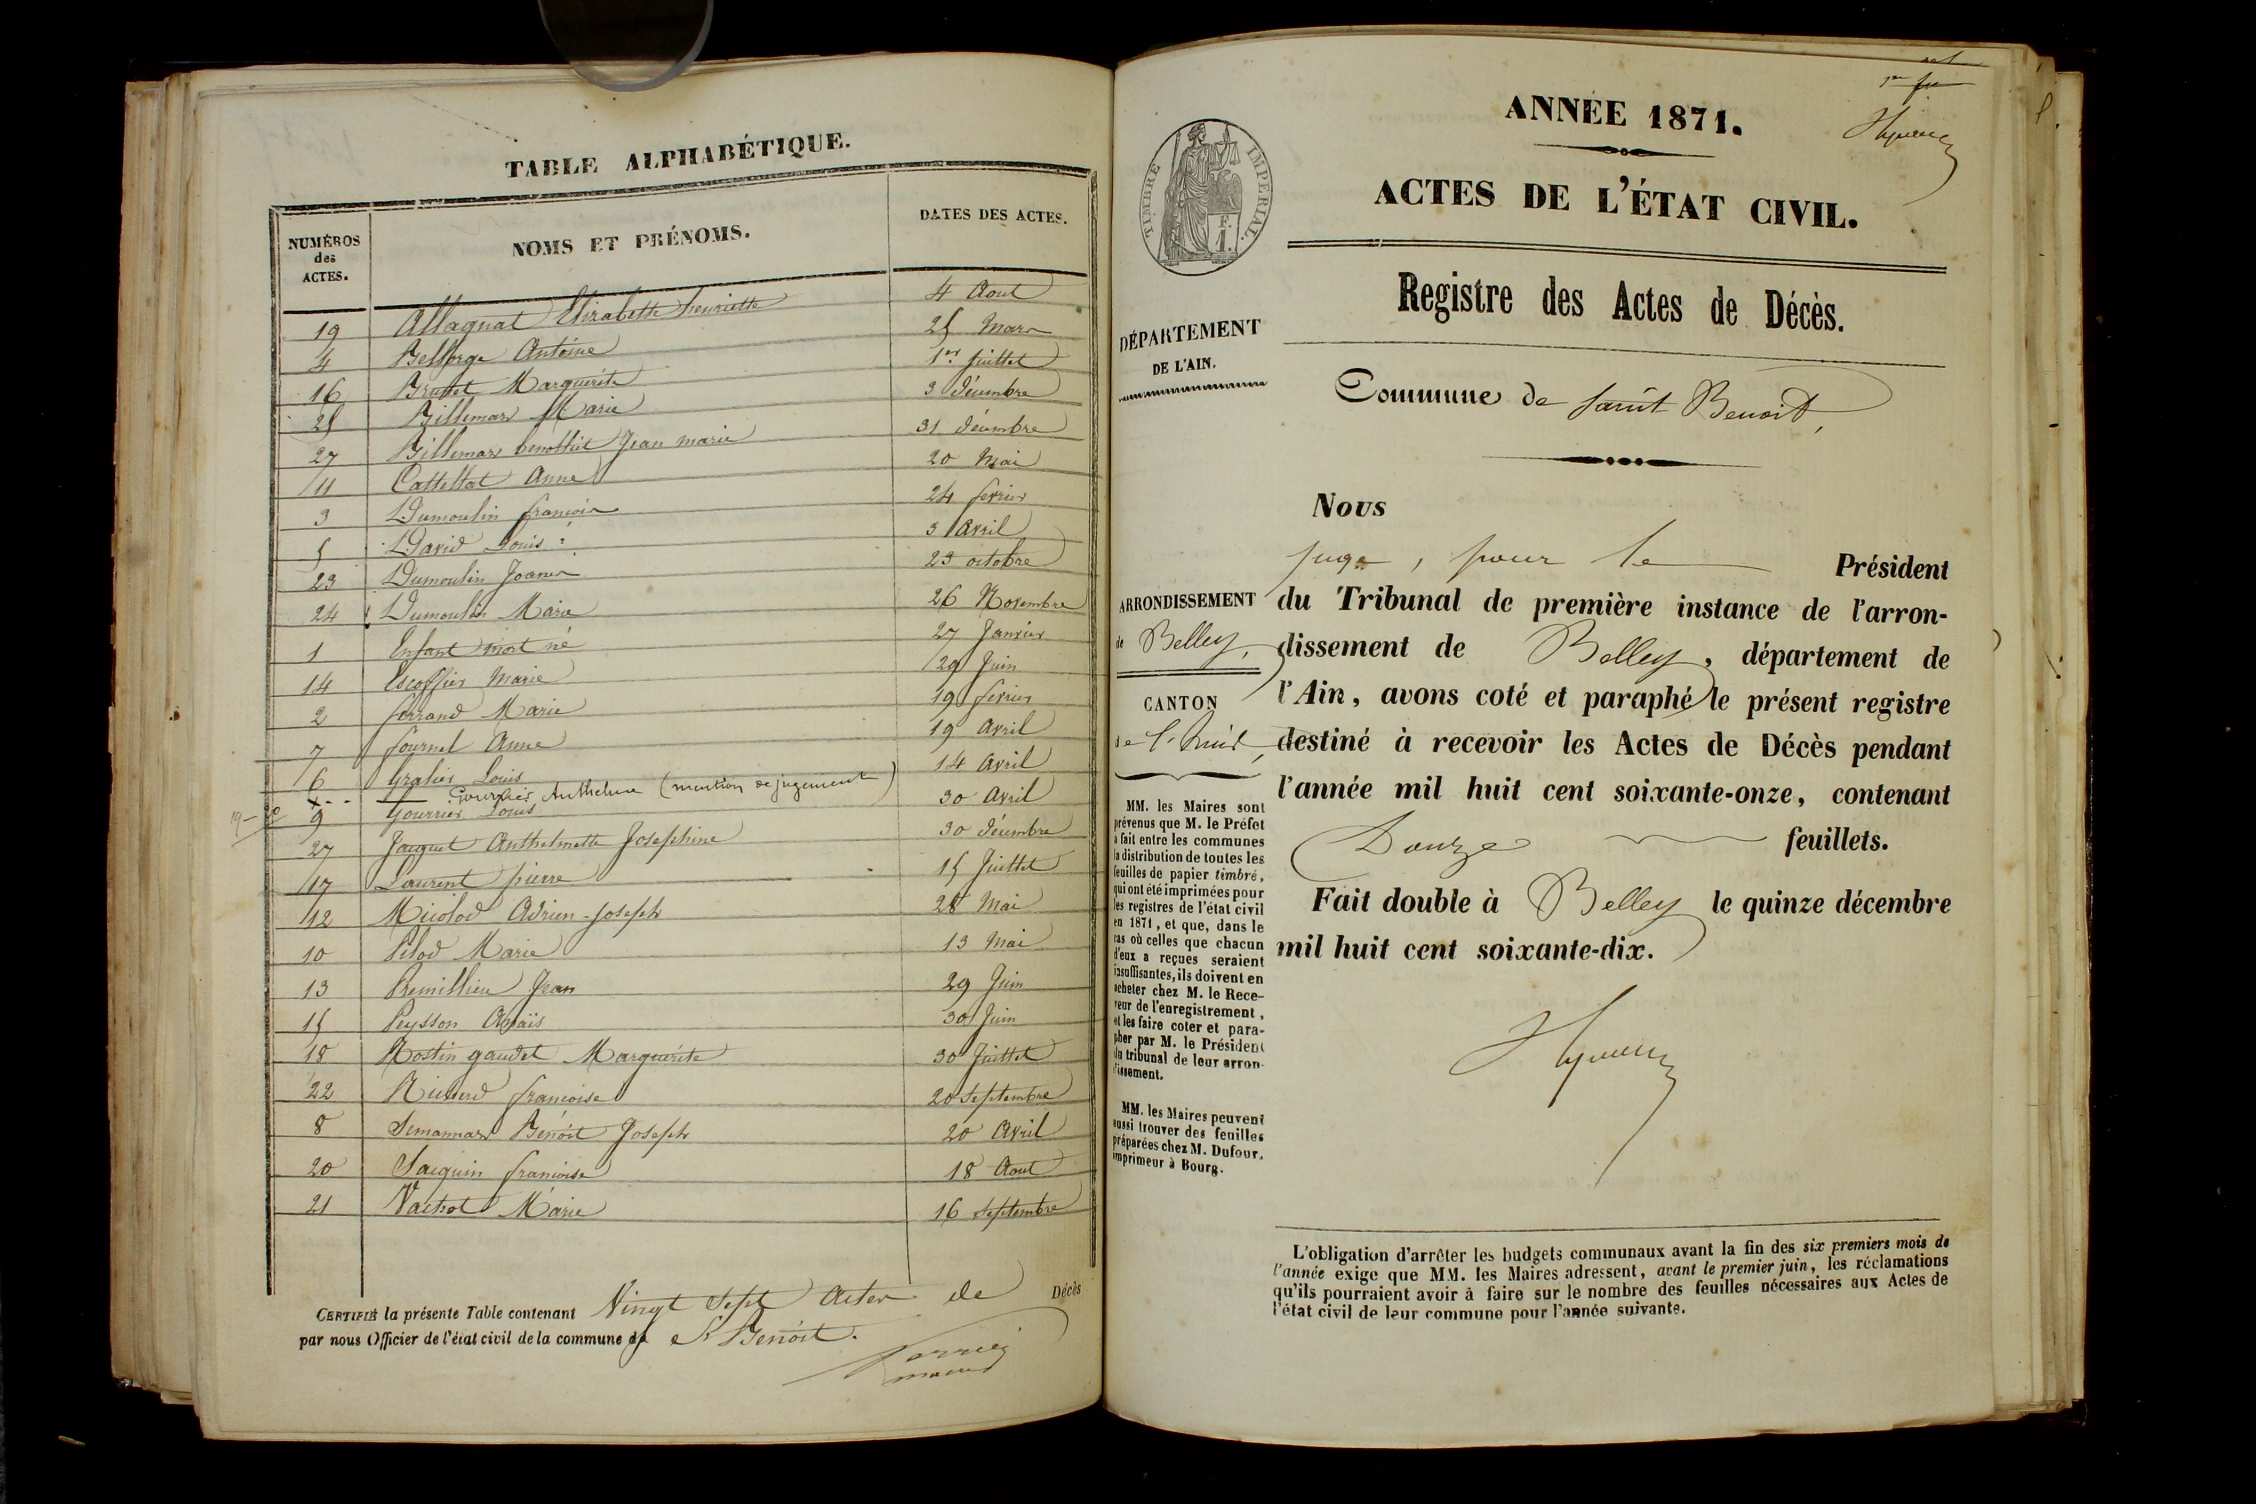 TABLE ALPHABÉTIQUE.
NUMÉROS des ACTES. NOMS ET PRÉNOMS. DATES DES ACTES.
19 Allagnat Elizabeth henriette 4 Aout
4 Belforge Antoine 25 Mars
16 Brunet Marguérite 1er Juillet
25 Billemaz Marie 3 décembre
27 Billemaz Jean marie 31 décembre
11 Cattellat Anne 20 Mai
3 Dumoulin françois 24 fevrier
5 David Louis 3 Avril
23 Dumoulin 23 octobre
24 Dumoulin Marie 26 Novembre
1 Enfant mort né 27 Janvier
14 Escoffier Marie 29 Juin
2 ferrand Marie 19 fevrier
7 fournel Anne 19 Avril
6 Gralier Louis 14 Avril
x Gourrier Anthelme (mention de jugement)
9 Gourrier Louis 30 Avril
27 Jauquet Anthelmette Joséphine 30 décembre
17 Laurent pierre 15 Juillet
12 Micolod Adrien Joseph 28 Mai
10 Pilod Marie 13 Mai
13 Premillieu Jean 29 Juin
15 Peysson Anaïs 30 Juin
18 Rostin gaudet Marguérite 30 Juillet
22 francoise 20 Septembre
8 Semanaz Bénoit Joseph 20 Avril
20 Saiquin francoise 18 Aout
21 Vachot Marie 16 septembre
CERTIFIÉ la présente Table contenant Vingt Sept Actes de Décès
par nous Officier de l'état civil de la commune de St Bénoit.
ANNÉE 1871.
ACTES DE L'ÉTAT CIVIL.
TIMBRE IMPÉRIAL.
F.
1.
Registre des Actes de Décès.
DÉPARTEMENT
DE L'AIN.
Commune de saint Benoit,
Nous
juge, pour le Président
ARRONDISSEMENT
de Belley,
CANTON
MM. les Maires sont
prévenus que M. le Préfet
a fait entre les communes
la distribution de toutes les
feuilles de papier timbré,
qui ont été imprimées pour
les registres de l'état civil
en 1871, et que, dans le
cas où celles que chacun
d'eux a reçues seraient
insuffisantes, ils doivent en
acheter chez M. le Rece-
veur de l'enregistrement,
et les faire coter et para-
pher par M. le Président
du tribunal de leur arron-
dissement.
MM. les Maires peuvent
aussi trouver des feuilles
préparées chez M. Dufour,
imprimeur à Bourg.
du Tribunal de première instance de l'arron-
dissement de Belley, département de
l'Ain, avons coté et paraphé le présent registre
destiné à recevoir les Actes de Décès pendant
l'année mil huit cent soixante-onze, contenant
Douze feuillets.
Fait double à Belley le quinze décembre
mil huit cent soixante-dix.
L'obligation d'arrêter les budgets communaux avant la fin des six premiers mois de
l'année exige que MM. les Maires adressent, avant le premier juin, les réclamations
qu'ils pourraient avoir à faire sur le nombre des feuilles nécessaires aux Actes de
l'état civil de leur commune pour l'année suivante.